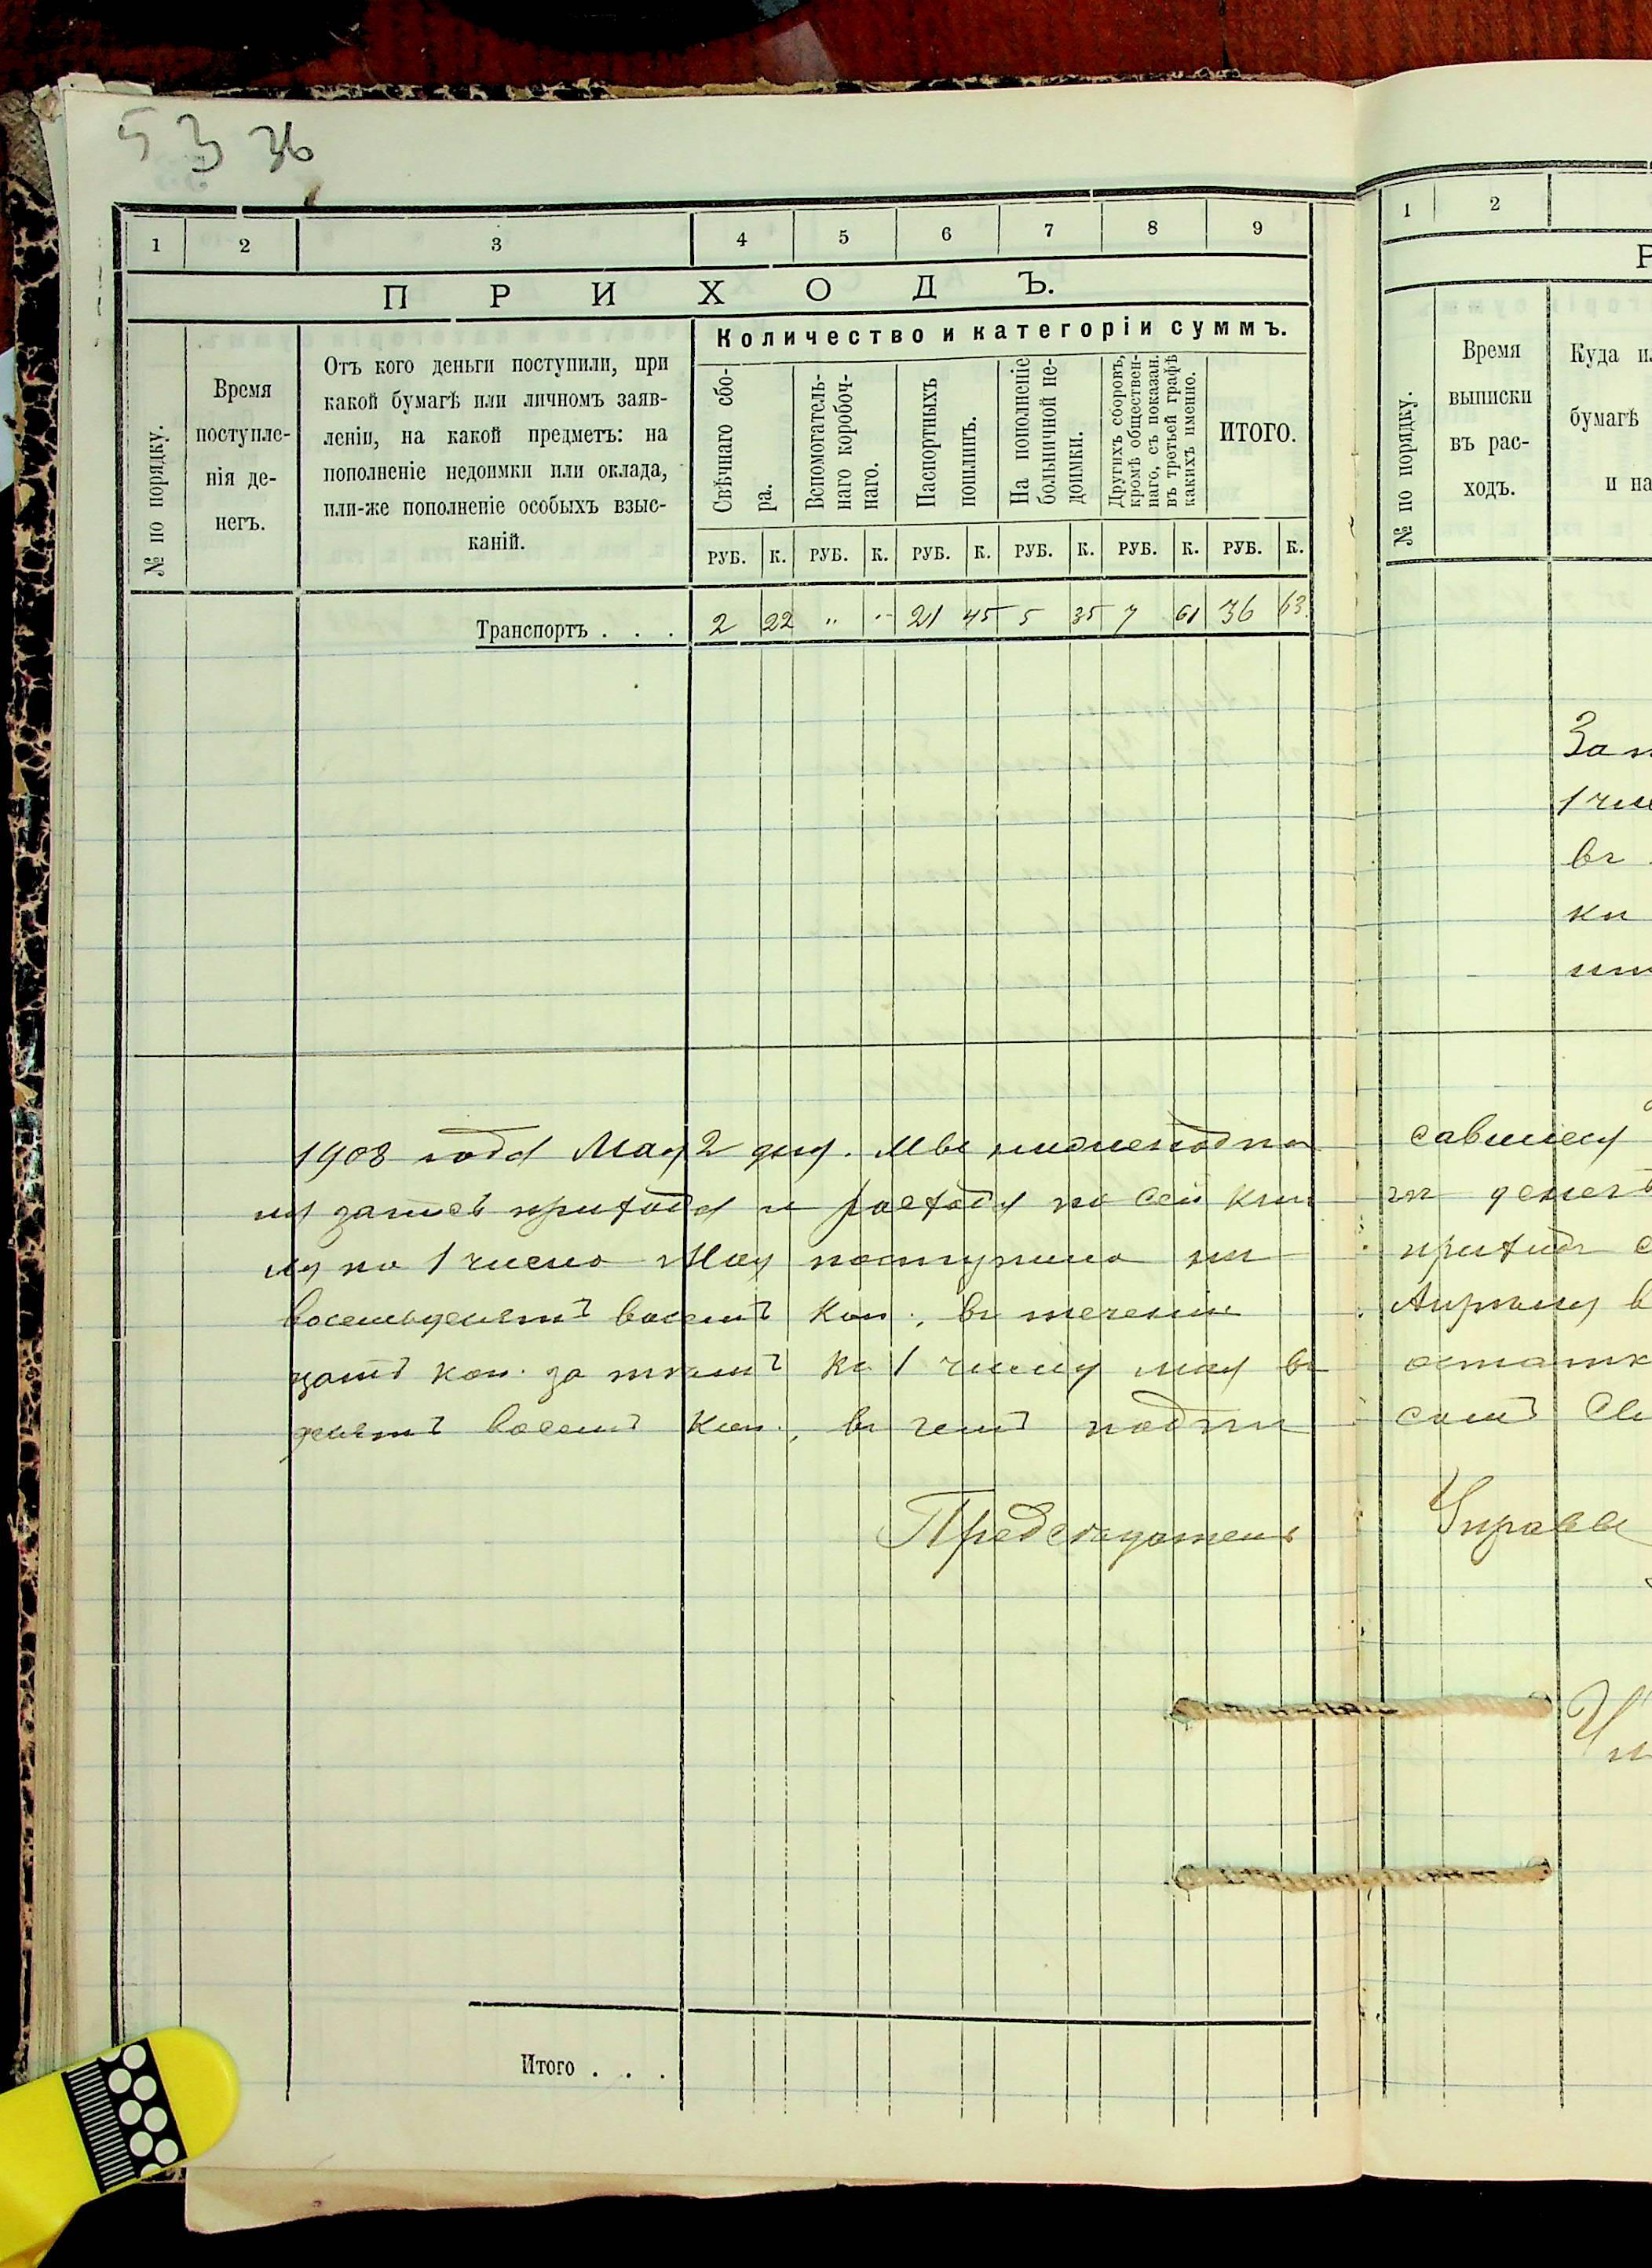 5 3 36
1 2 3 4 5 6 7 8 9
ПРИХОДЪ.
№ по порядку.
Время
поступле-
нія де-
негъ.
Отъ кого деньги поступили, при
какой бумагѣ или личномъ заяв-
леніи, на какой предметъ: на
пополненіе недоимки или оклада,
или-же пополненіе особыхъ взыс-
каній.
Количество и категоріи суммъ.
Свѣчнаго сбо-
ра.
Вспомогатель-
наго коробоч-
наго.
Паспортныхъ
пошлинъ.
На пополненіе
больничной не-
доимки.
Другихъ сборовъ,
кромѣ обществен-
наго, съ показан.
въ третьей графѣ
какихъ именно.
ИТОГО.
РУБ. К. РУБ. К. РУБ. К. РУБ. К. РУБ. К. РУБ. К.
Транспортъ . . . 2 22 " " 21 45 5 35 7 61 36 63
1908 года Мая 2 дня. Мы нижеподпи
запись прихода и расхода по сей кни
на 1 число Мая поступило на
восемьдесят восемь коп., въ теченіи
коп. за тѣмъ къ 1 числу мая въ
десять восемь коп., въ чемъ подпи
Председатель
Итого . . .
1 2
№ по порядку.
Время
выписки
въ рас-
ходъ.
Куда и
бумагѣ
и на
Зап
1 чис
въ
ки
савшіеся
денегъ
приходъ с
Апрѣлѣ в
остатк
Управы